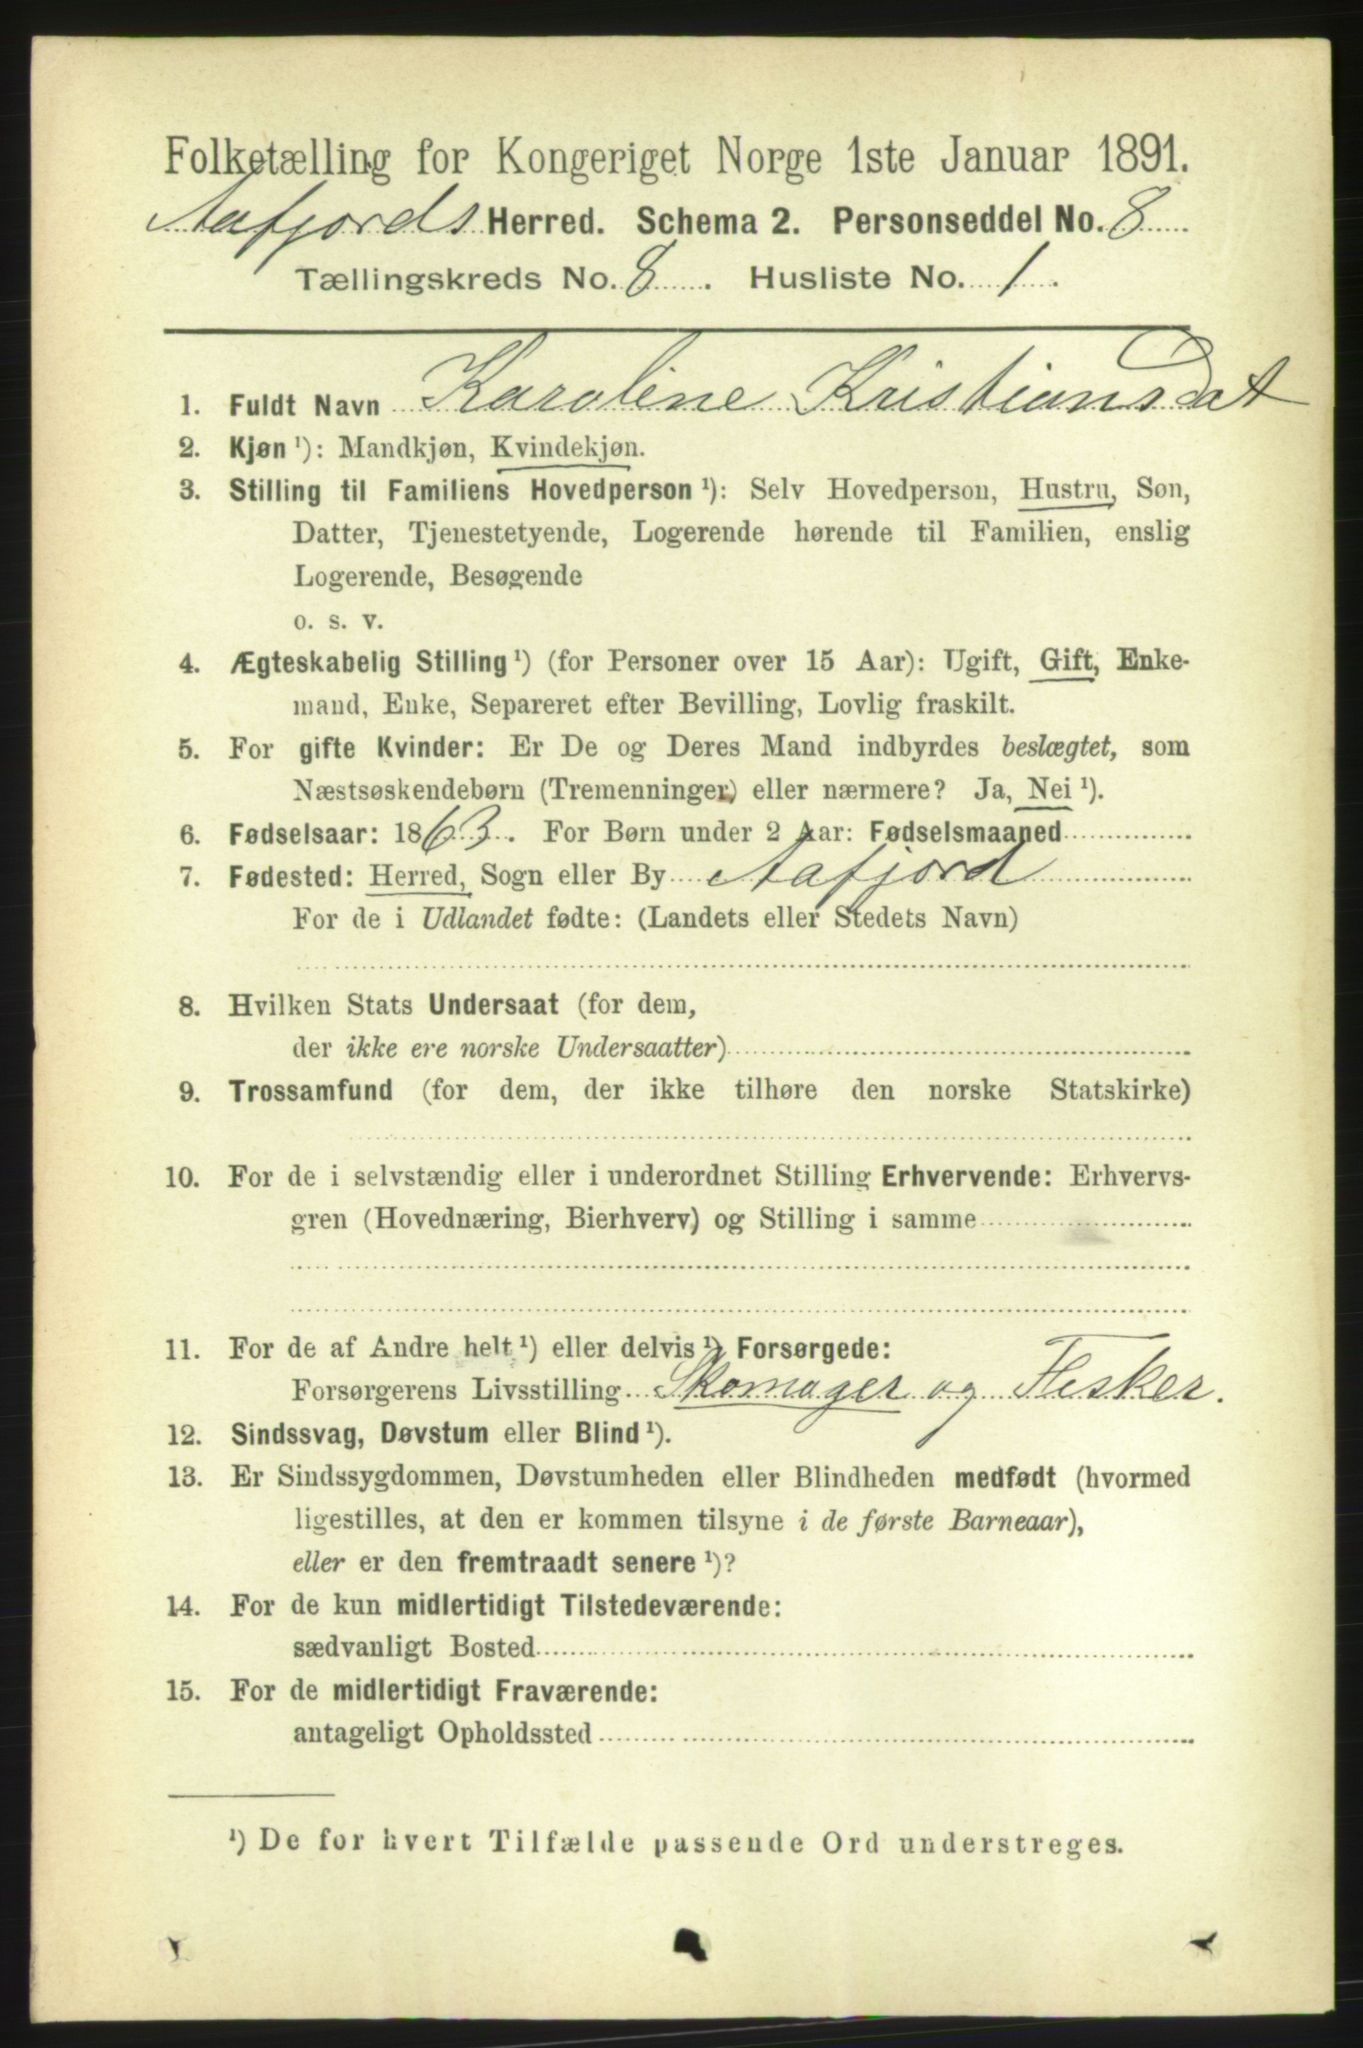 Folketælling for Kongeriget Norge 1ste Januar 1891.
Aafjords Herred. Schema 2. Personseddel No. 8
Tællingskreds No. 8. Husliste No. 1.
1. Fuldt Navn Karoline Kristiansdat
2. Kjøn ¹): Mandkjøn, Kvindekjøn.
3. Stilling til Familiens Hovedperson ¹): Selv Hovedperson, Hustru, Søn,
Datter, Tjenestetyende, Logerende hørende til Familien, enslig
Logerende, Besøgende
o. s. v.
4. Ægteskabelig Stilling ¹) (for Personer over 15 Aar): Ugift, Gift, Enke-
mand, Enke, Separeret efter Bevilling, Lovlig fraskilt.
5. For gifte Kvinder: Er De og Deres Mand indbyrdes beslægtet, som
Næstsøskendebørn (Tremenninger) eller nærmere? Ja, Nei ¹).
6. Fødselsaar: 1863. For Børn under 2 Aar: Fødselsmaaned
7. Fødested: Herred, Sogn eller By Aafjord
For de i Udlandet fødte: (Landets eller Stedets Navn)
8. Hvilken Stats Undersaat (for dem,
der ikke ere norske Undersaatter)
9. Trossamfund (for dem, der ikke tilhøre den norske Statskirke)
10. For de i selvstændig eller i underordnet Stilling Erhvervende: Erhvervs-
gren (Hovednæring, Bierhverv) og Stilling i samme
11. For de af Andre helt ¹) eller delvis ¹) Forsørgede:
Forsørgerens Livsstilling Skomager og Fisker.
12. Sindssvag, Døvstum eller Blind ¹).
13. Er Sindssygdommen, Døvstumheden eller Blindheden medfødt (hvormed
ligestilles, at den er kommen tilsyne i de første Barneaar),
eller er den fremtraadt senere ¹)?
14. For de kun midlertidigt Tilstedeværende:
sædvanligt Bosted
15. For de midlertidigt Fraværende:
antageligt Opholdssted
¹) De for hvert Tilfælde passende Ord understreges.